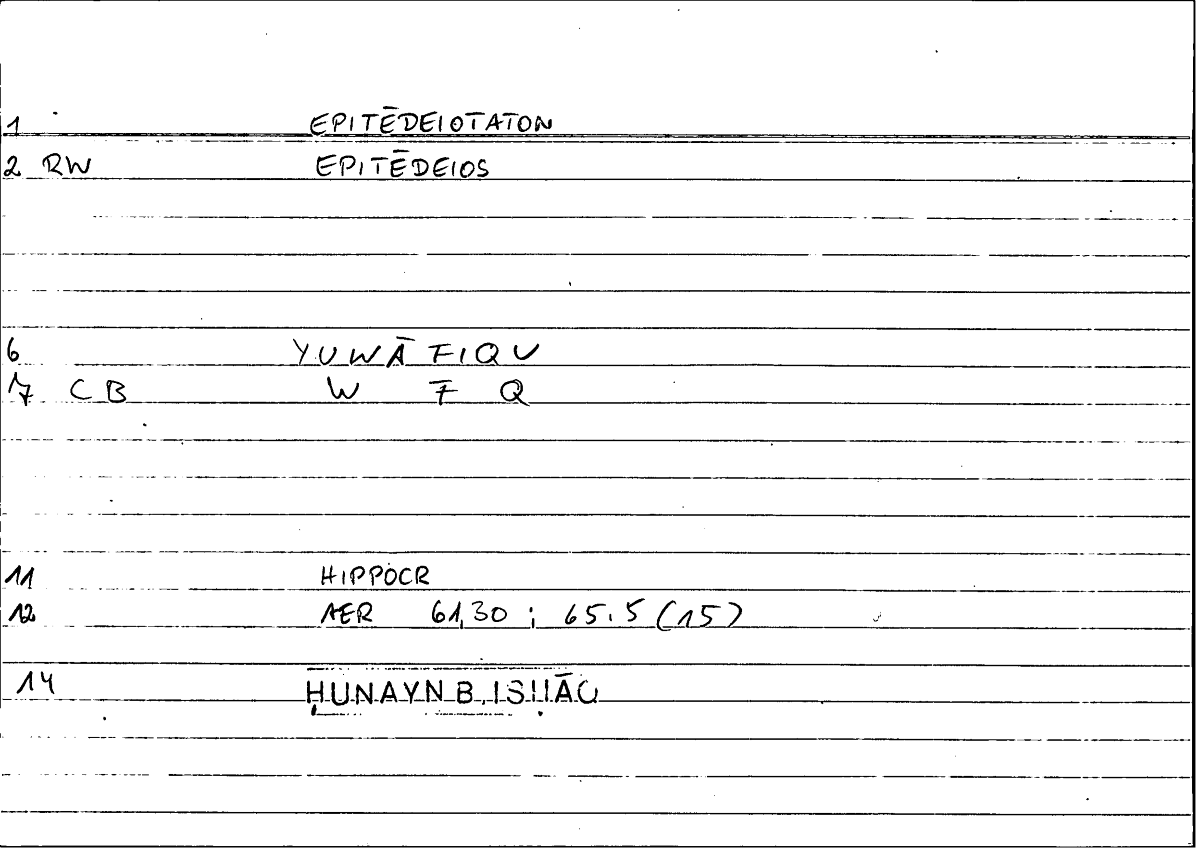 1 EPITĒDEIOTATON
2 RW EPITĒDEIOS
6 YUWĀFIQU
7 CB W F Q
11 HIPPOCR
12 AER 61,30 ; 65.5 (15)
14 ḤUNAYN B. ISḤĀQ